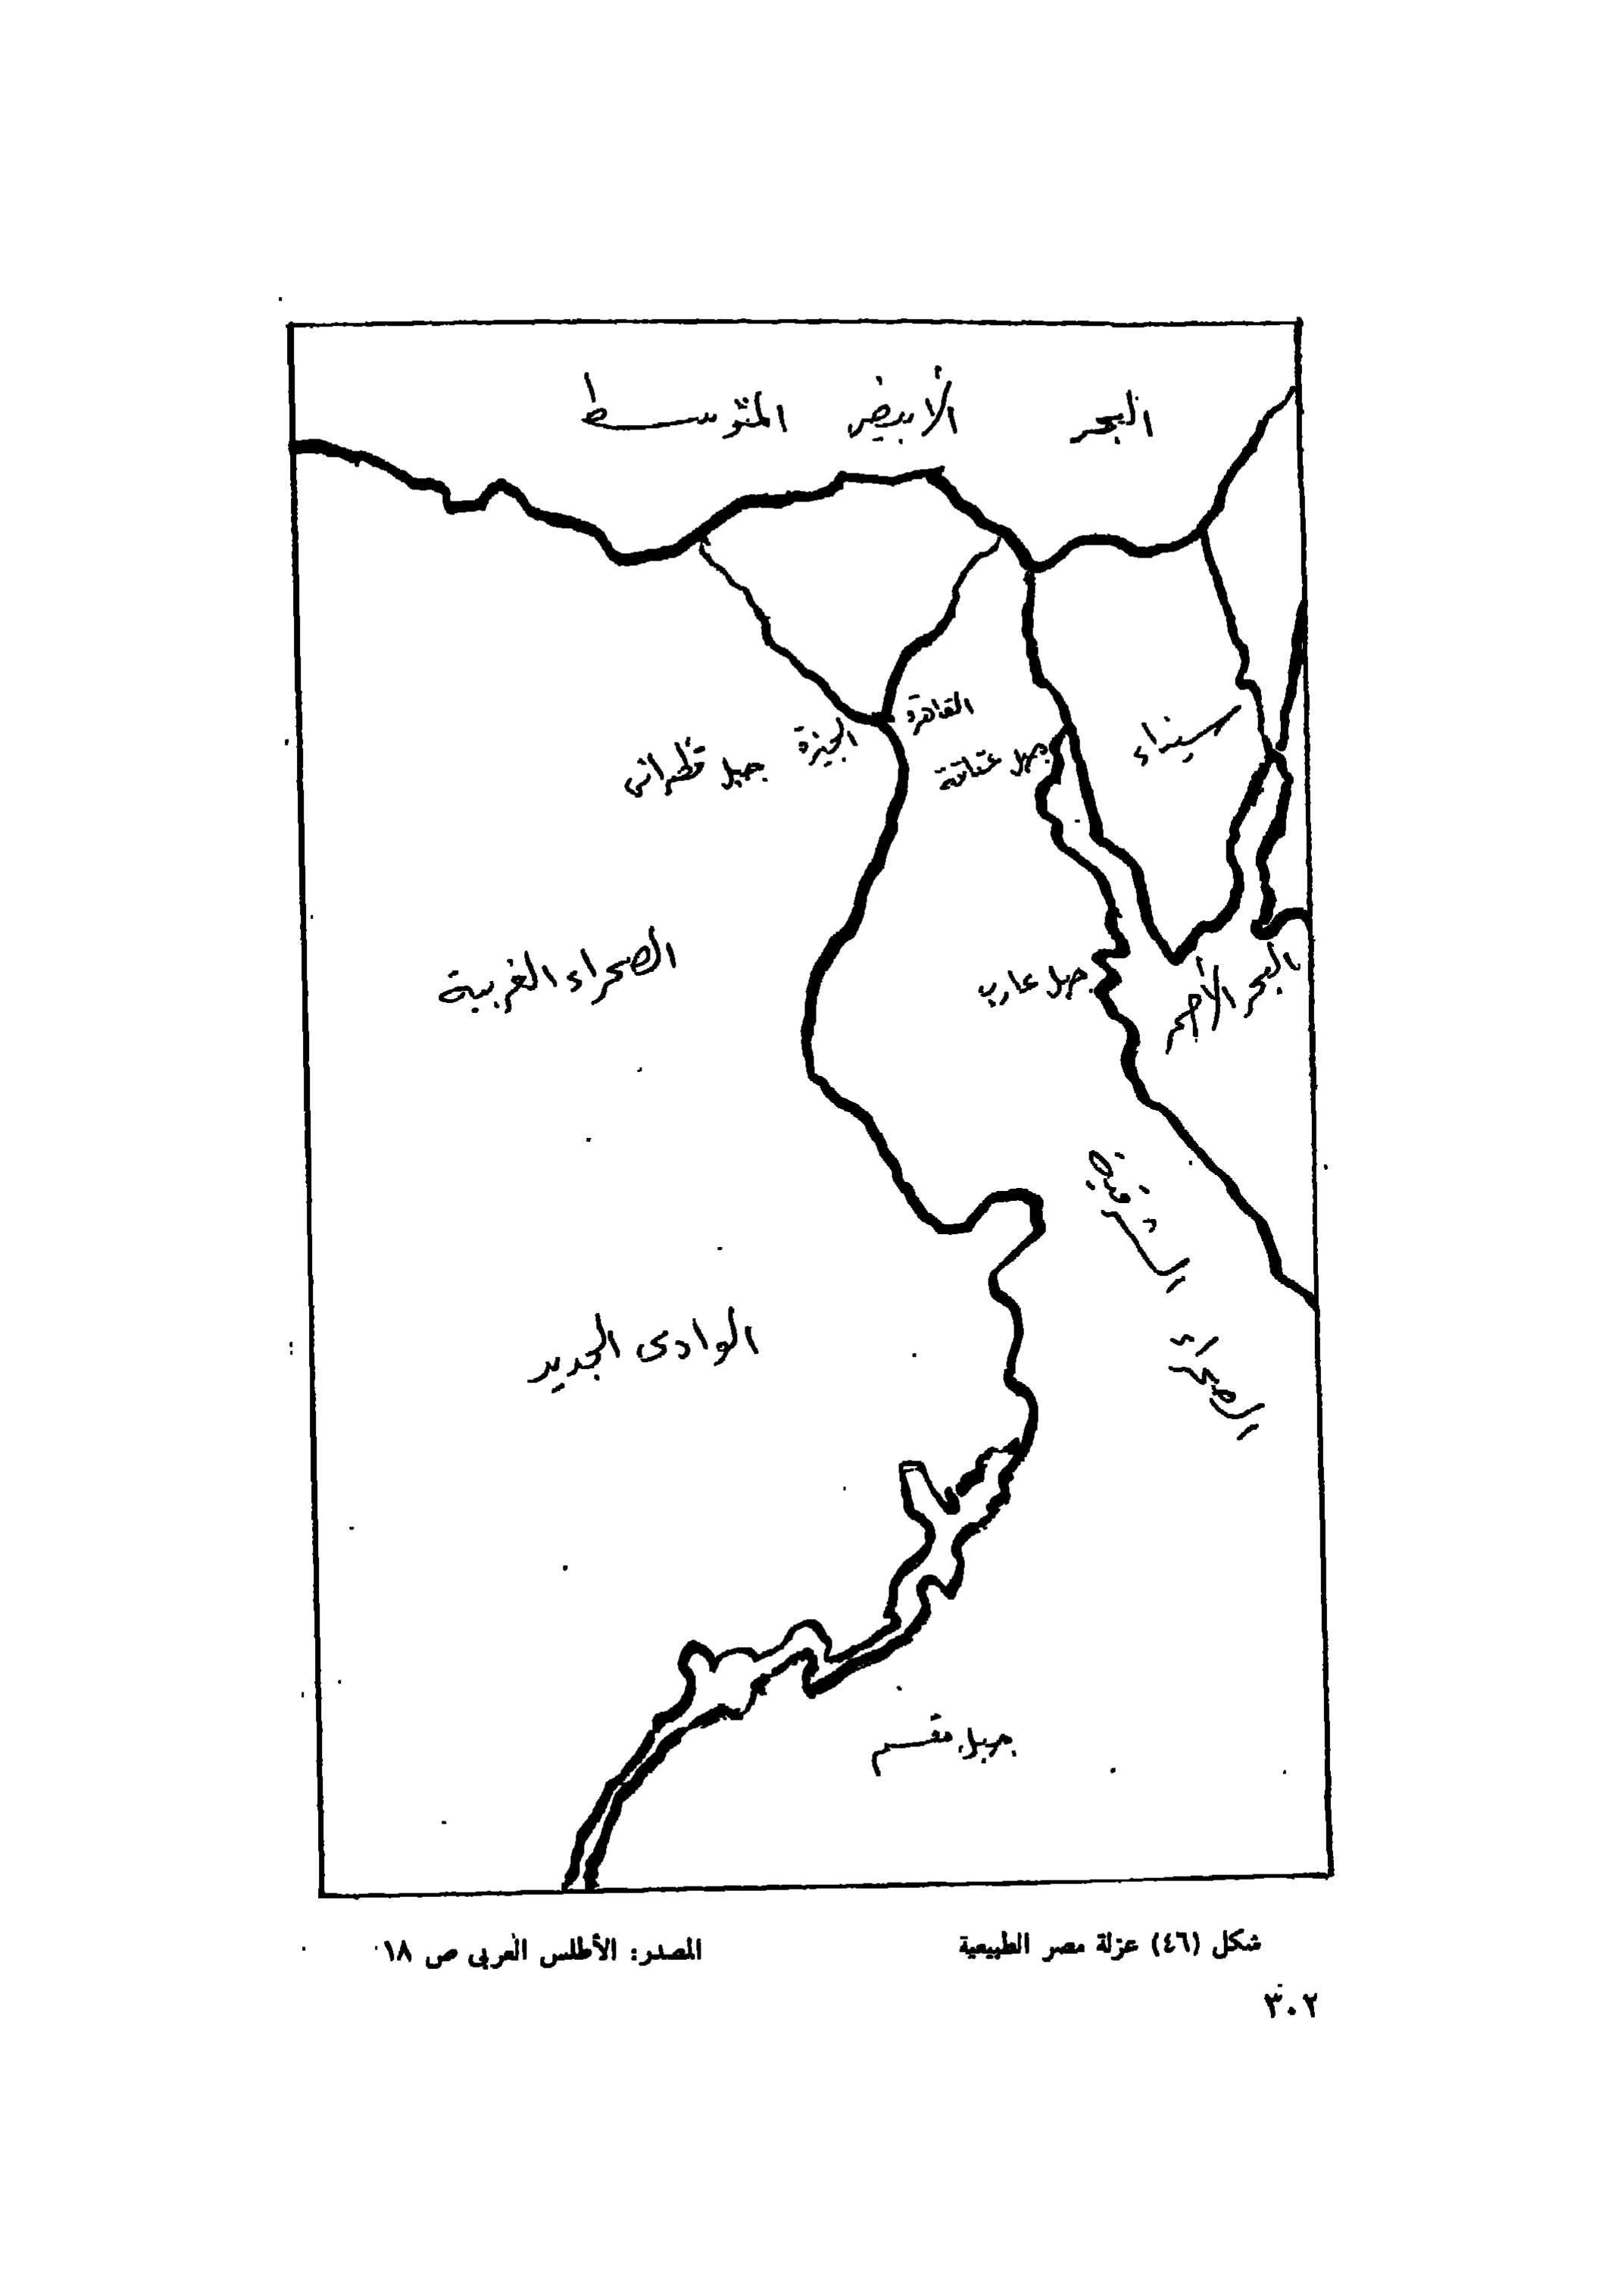 البحر الأبيض المتوسط
القاهرة
الجيزة
سيناء
جبل عتاقة
جبل قطرانى
الصحراء الغربية
جبل عارب
البحر الأحمر
الصحراء الشرقية
الوادى الجديد
جبل مقسم
شكل (٤٦) عزلة مصر الطبيعية
المصدر: الأطلس العربى ص ١٨
٣٠٢